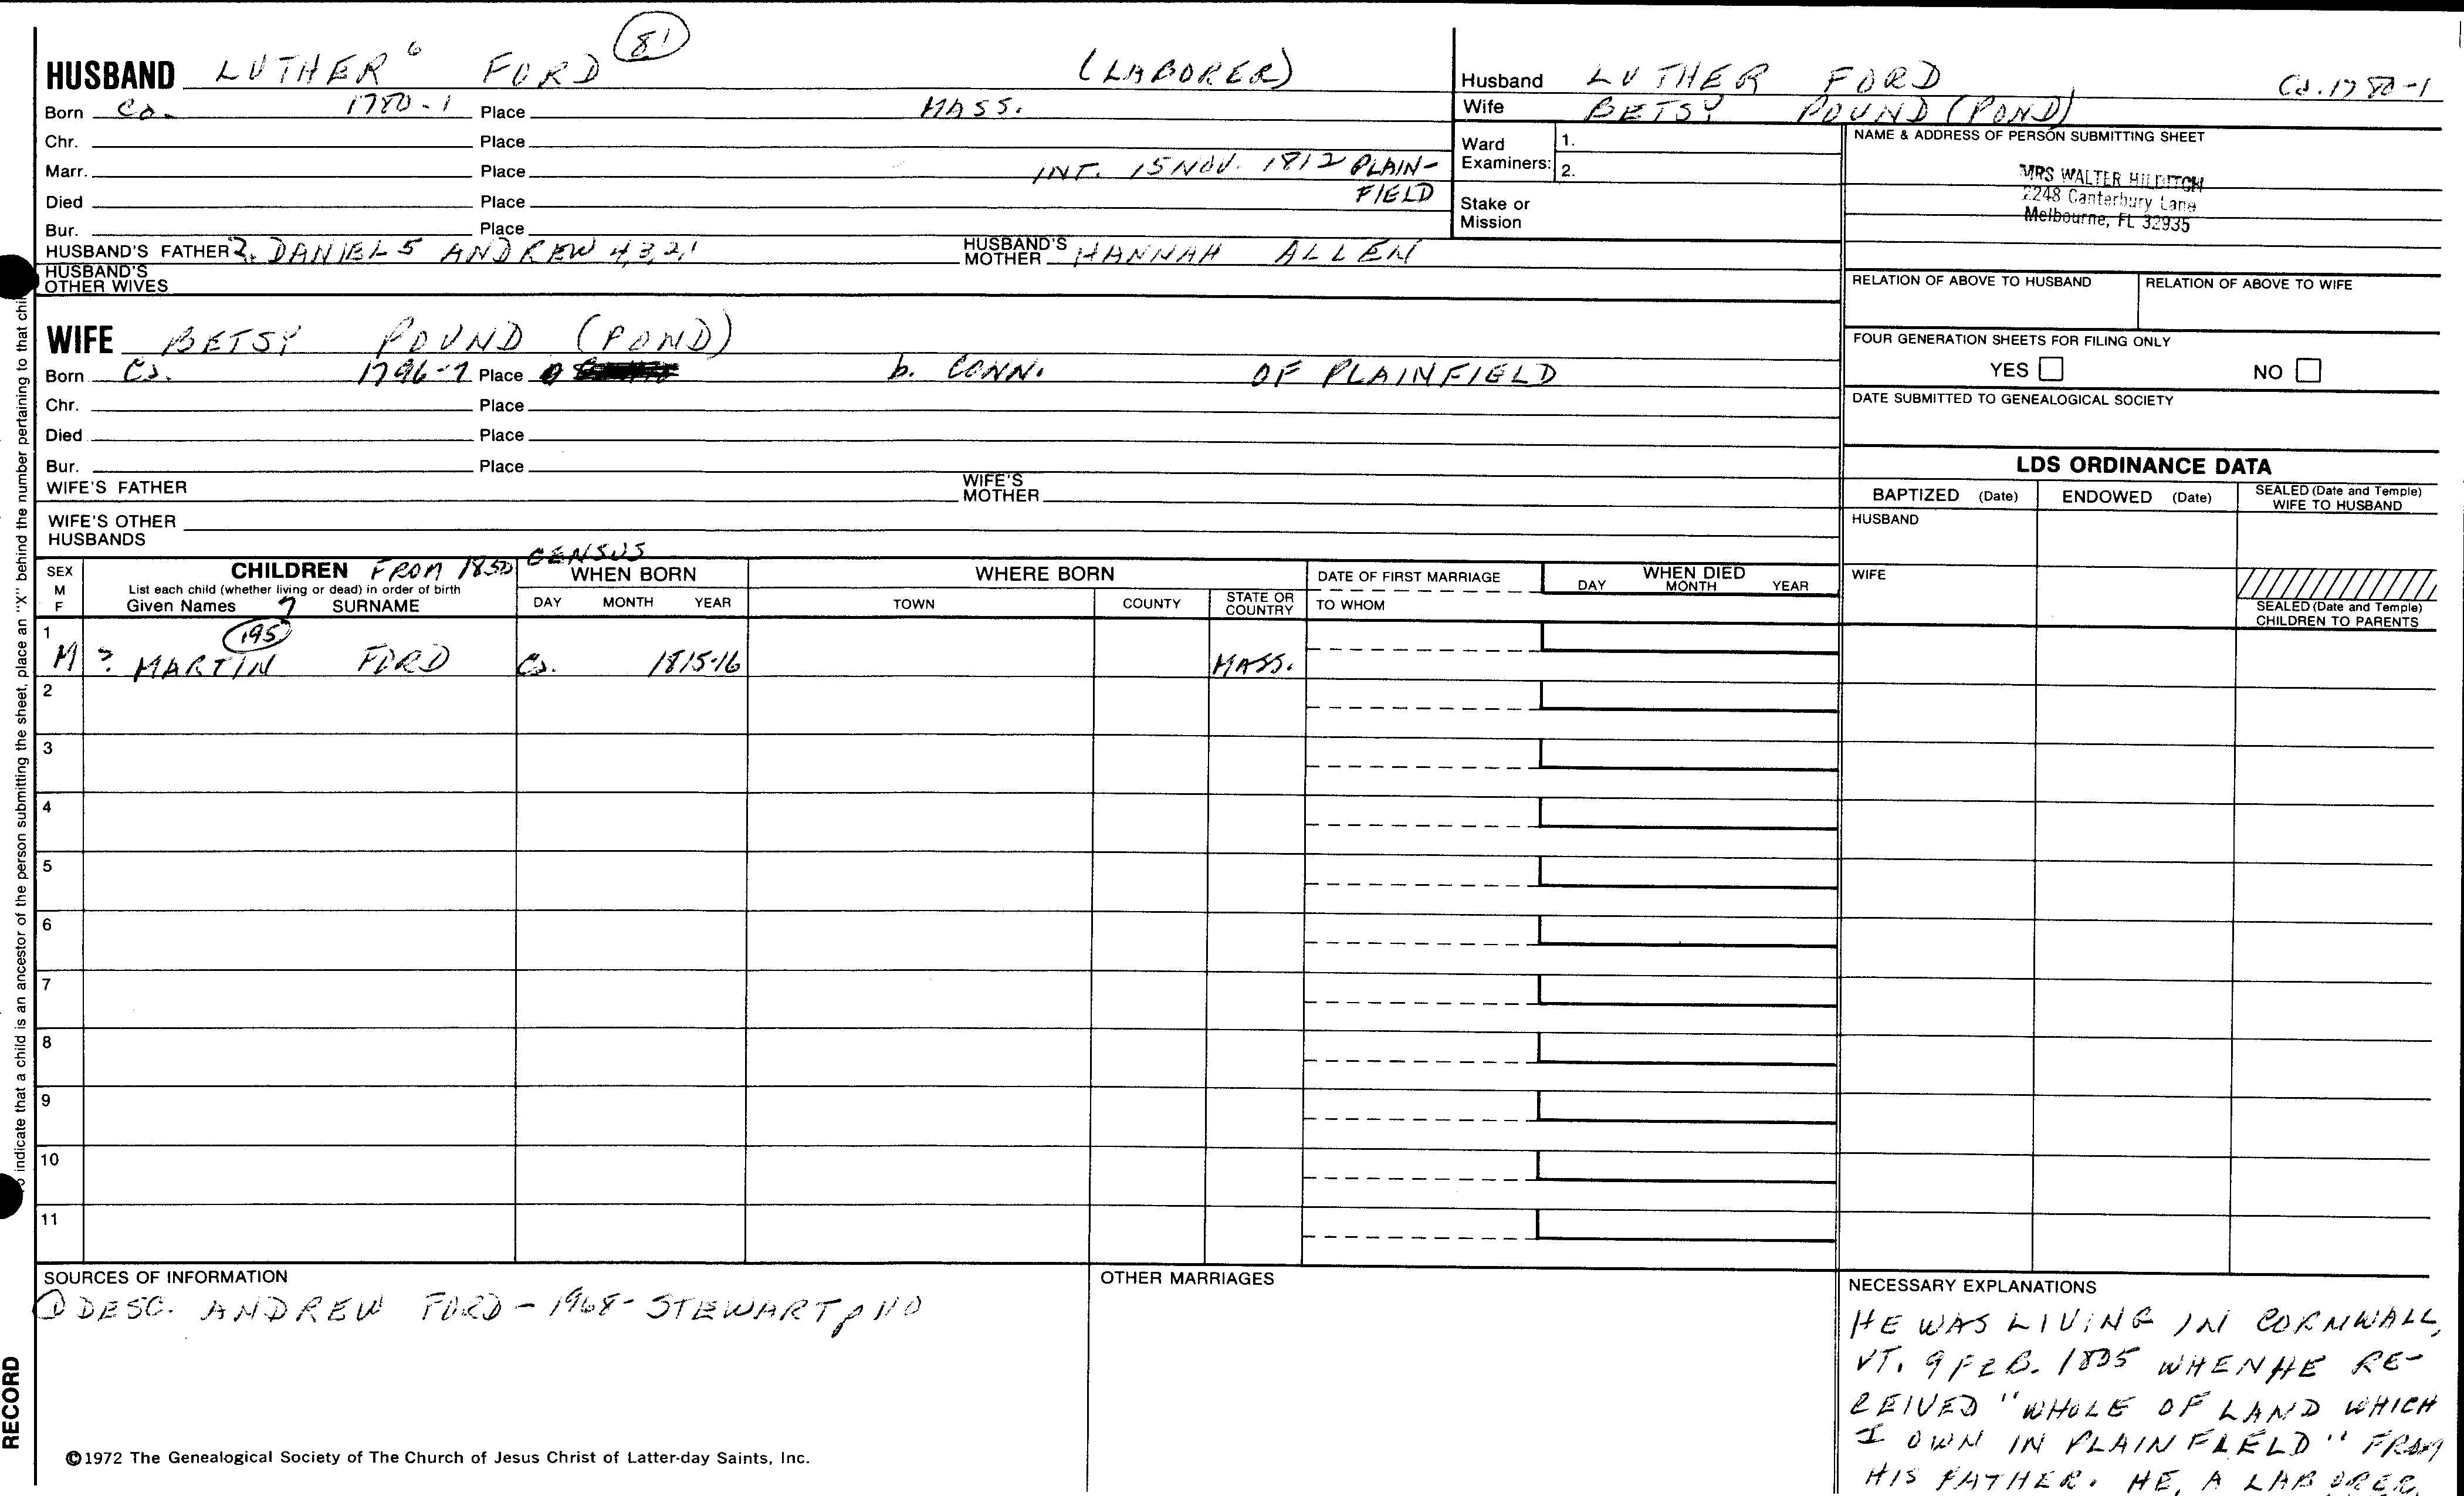 HUSBAND LUTHER 6 FORD 81 (LABORER)
Born Ca. 1780-1 Place MASS.
Chr. Place
Marr. Place INT. 15 NOV. 1812 PLAIN-
FIELD
Died Place
Bur. Place
HUSBAND'S FATHER ?. DANIEL 5 ANDREW 4,3,2,1 HUSBAND'S MOTHER HANNAH ALLEN
HUSBAND'S
OTHER WIVES
WIFE BETSY POUND (POND)
Born Ca. 1796-7 Place b. CONN. OF PLAINFIELD
Chr. Place
Died Place
Bur. Place
WIFE'S FATHER WIFE'S MOTHER
WIFE'S OTHER
HUSBANDS
Husband LUTHER FORD Ca. 1780-1
Wife BETSY POUND (POND)
Ward
Examiners:
1.
2.
Stake or
Mission
NAME & ADDRESS OF PERSON SUBMITTING SHEET
MRS WALTER HILDITCH
2248 Canterbury Lane
Melbourne, FL 32935
RELATION OF ABOVE TO HUSBAND RELATION OF ABOVE TO WIFE
FOUR GENERATION SHEETS FOR FILING ONLY
YES NO
DATE SUBMITTED TO GENEALOGICAL SOCIETY
LDS ORDINANCE DATA
BAPTIZED (Date) ENDOWED (Date) SEALED (Date and Temple)
WIFE TO HUSBAND
HUSBAND
WIFE
SEALED (Date and Temple)
CHILDREN TO PARENTS
SEX
M
F
CHILDREN FROM 1850 CENSUS
List each child (whether living or dead) in order of birth
Given Names 7 SURNAME
WHEN BORN
DAY MONTH YEAR
WHERE BORN
TOWN COUNTY STATE OR
COUNTRY
DATE OF FIRST MARRIAGE
TO WHOM
WHEN DIED
DAY MONTH YEAR
1
195
M ? MARTIN FORD Ca. 1815-16 MASS.
2
3
4
5
6
7
8
9
10
11
SOURCES OF INFORMATION
① DESC. ANDREW FORD - 1968 - STEWART p 110
OTHER MARRIAGES
NECESSARY EXPLANATIONS
HE WAS LIVING IN CORNWALL,
VT. 9 FEB. 1835 WHEN HE RE-
CEIVED "WHOLE OF LAND WHICH
I OWN IN PLAINFIELD" FROM
HIS FATHER. HE, A LABORER,
©1972 The Genealogical Society of The Church of Jesus Christ of Latter-day Saints, Inc.
indicate that a child is an ancestor of the person submitting the sheet, place an "X" behind the number pertaining to that
RECORD